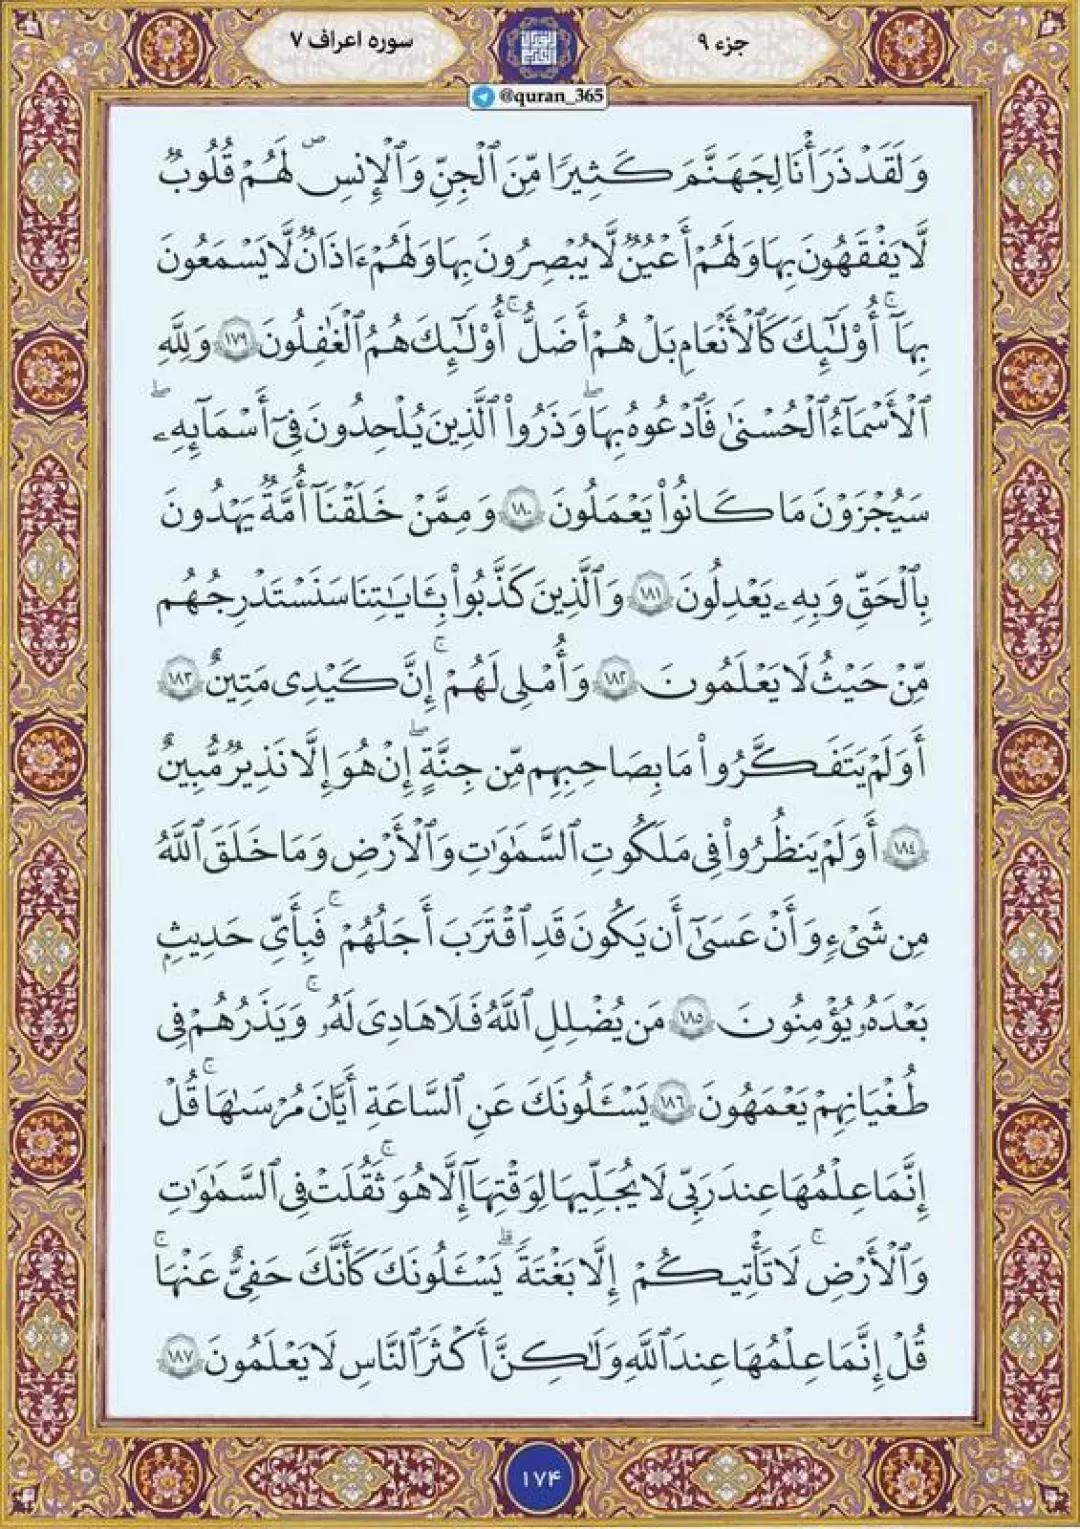 جزء ۹
سوره اعراف ۷
@quran_365
وَلَقَدْ ذَرَأْنَا لِجَهَنَّمَ كَثِيرًا مِّنَ ٱلْجِنِّ وَٱلْإِنسِ ۖ لَهُمْ قُلُوبٌ
لَّا يَفْقَهُونَ بِهَا وَلَهُمْ أَعْيُنٌ لَّا يُبْصِرُونَ بِهَا وَلَهُمْ ءَاذَانٌ لَّا يَسْمَعُونَ
بِهَآ ۚ أُو۟لَٰٓئِكَ كَٱلْأَنْعَامِ بَلْ هُمْ أَضَلُّ ۚ أُو۟لَٰٓئِكَ هُمُ ٱلْغَٰفِلُونَ ١٧٩ وَلِلَّهِ
ٱلْأَسْمَآءُ ٱلْحُسْنَىٰ فَٱدْعُوهُ بِهَا ۖ وَذَرُوا۟ ٱلَّذِينَ يُلْحِدُونَ فِىٓ أَسْمَٰٓئِهِۦ ۖ
سَيُجْزَوْنَ مَا كَانُوا۟ يَعْمَلُونَ ١٨٠ وَمِمَّنْ خَلَقْنَآ أُمَّةٌ يَهْدُونَ
بِٱلْحَقِّ وَبِهِۦ يَعْدِلُونَ ١٨١ وَٱلَّذِينَ كَذَّبُوا۟ بِـَٔايَٰتِنَا سَنَسْتَدْرِجُهُم
مِّنْ حَيْثُ لَا يَعْلَمُونَ ١٨٢ وَأُمْلِى لَهُمْ ۚ إِنَّ كَيْدِى مَتِينٌ ١٨٣
أَوَلَمْ يَتَفَكَّرُوا۟ مَا بِصَاحِبِهِم مِّن جِنَّةٍ ۖ إِنْ هُوَ إِلَّا نَذِيرٌ مُّبِينٌ
١٨٤ أَوَلَمْ يَنظُرُوا۟ فِى مَلَكُوتِ ٱلسَّمَٰوَٰتِ وَٱلْأَرْضِ وَمَا خَلَقَ ٱللَّهُ
مِن شَىْءٍ وَأَنْ عَسَىٰٓ أَن يَكُونَ قَدِ ٱقْتَرَبَ أَجَلُهُمْ ۚ فَبِأَىِّ حَدِيثٍۭ
بَعْدَهُۥ يُؤْمِنُونَ ١٨٥ مَن يُضْلِلِ ٱللَّهُ فَلَا هَادِىَ لَهُۥ ۚ وَيَذَرُهُمْ فِى
طُغْيَٰنِهِمْ يَعْمَهُونَ ١٨٦ يَسْـَٔلُونَكَ عَنِ ٱلسَّاعَةِ أَيَّانَ مُرْسَىٰهَا ۚ قُلْ
إِنَّمَا عِلْمُهَا عِندَ رَبِّى لَا يُجَلِّيهَا لِوَقْتِهَآ إِلَّا هُوَ ۚ ثَقُلَتْ فِى ٱلسَّمَٰوَٰتِ
وَٱلْأَرْضِ ۚ لَا تَأْتِيكُمْ إِلَّا بَغْتَةً ۗ يَسْـَٔلُونَكَ كَأَنَّكَ حَفِىٌّ عَنْهَا ۚ
قُلْ إِنَّمَا عِلْمُهَا عِندَ ٱللَّهِ وَلَٰكِنَّ أَكْثَرَ ٱلنَّاسِ لَا يَعْلَمُونَ ١٨٧
۱۷۴